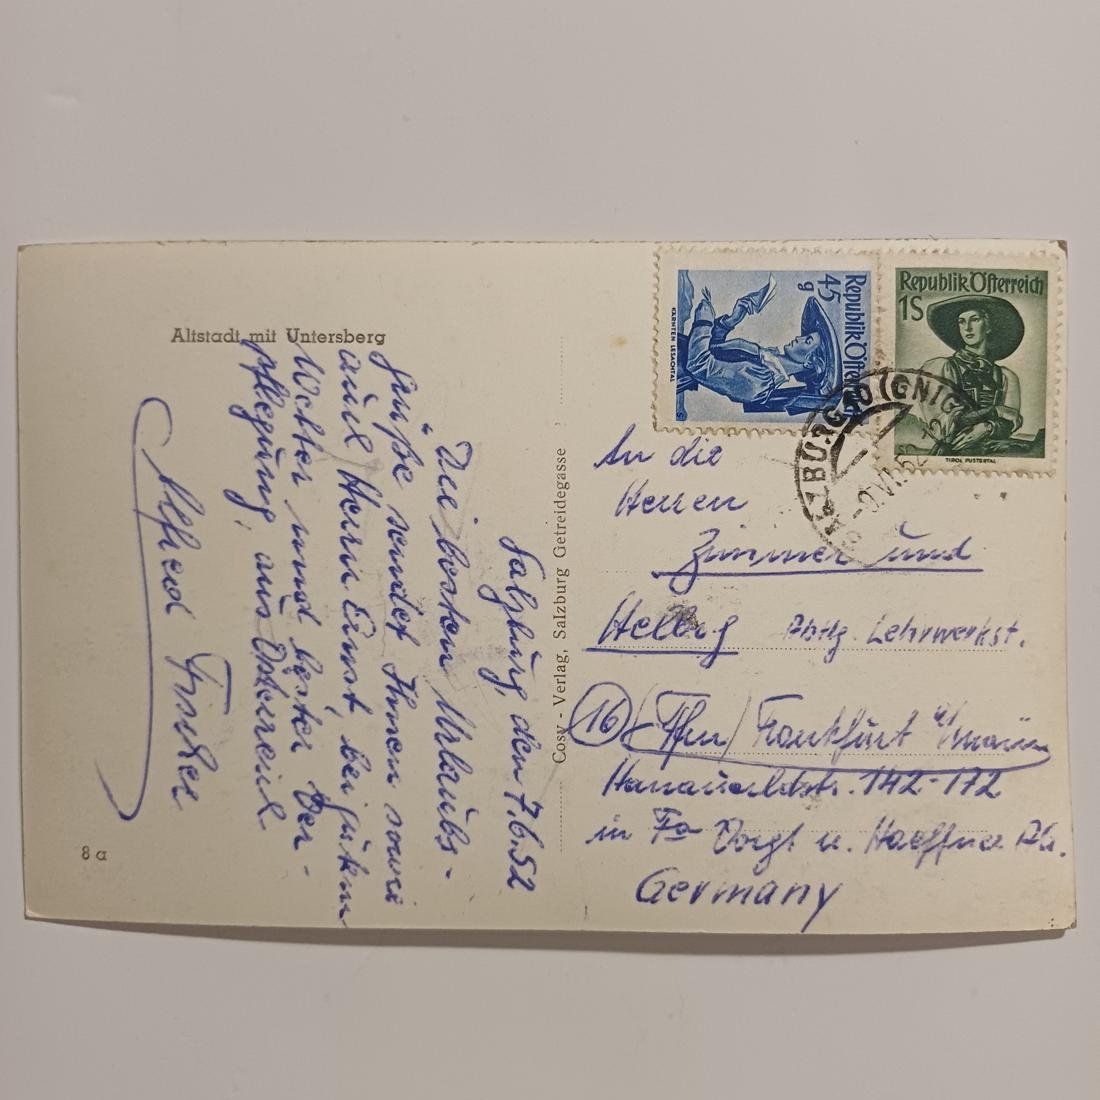 Altstadt mit Untersberg
Salzburg, den 7.6.52
Die besten Urlaubs-
Grüße sendet Ihnen sowie
auch Herrn Ernst, bei gutem
Wetter und bester Ver-
pflegung, aus Österreich
Alfred
8 a
Cosy - Verlag, Salzburg Getreidegasse
Republik Österreich
45 g
KÄRNTEN LESACHTAL
Republik Österreich
1S
TIROL PUSTERTAL
SALZBURG 10 (GNIGL)
An die
Herren
Zimmer und
Helbig Abtlg. Lehrwerkst.
16 (Ffm) Frankfurt a/main
Hanauerldstr. 142-172
in Fa Voigt u. Haeffner AG.
Germany